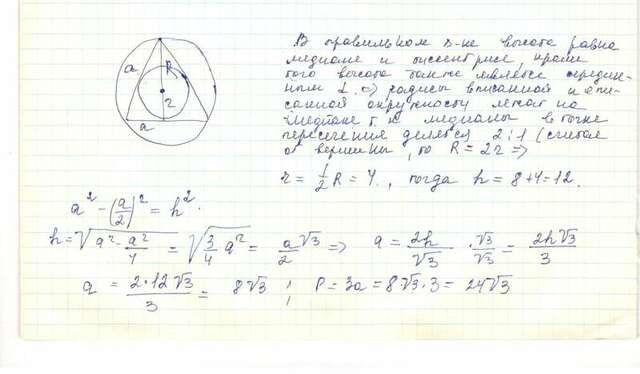 В правильном Δ-ке высота равна
медиане и биссектрисе, кроме
того высота также является середин-
ным ⊥. => радиусы вписанной и опи-
санной окружности лежат на
медиане т.к медианы в точке
пересечения делятся 2:1 (считая
от вершины, то R = 2r =>
r = 1/2 R = 4. , тогда h = 8+4=12.
a
R
r
a
a² - (a/2)² = h².
h = √(a² - a²/4) = √(3/4 a²) = a√3/2 => a = 2h/√3 · √3/√3 = 2h√3/3
a = 2·12√3/3 = 8√3 ; P = 3a = 8√3·3 = 24√3